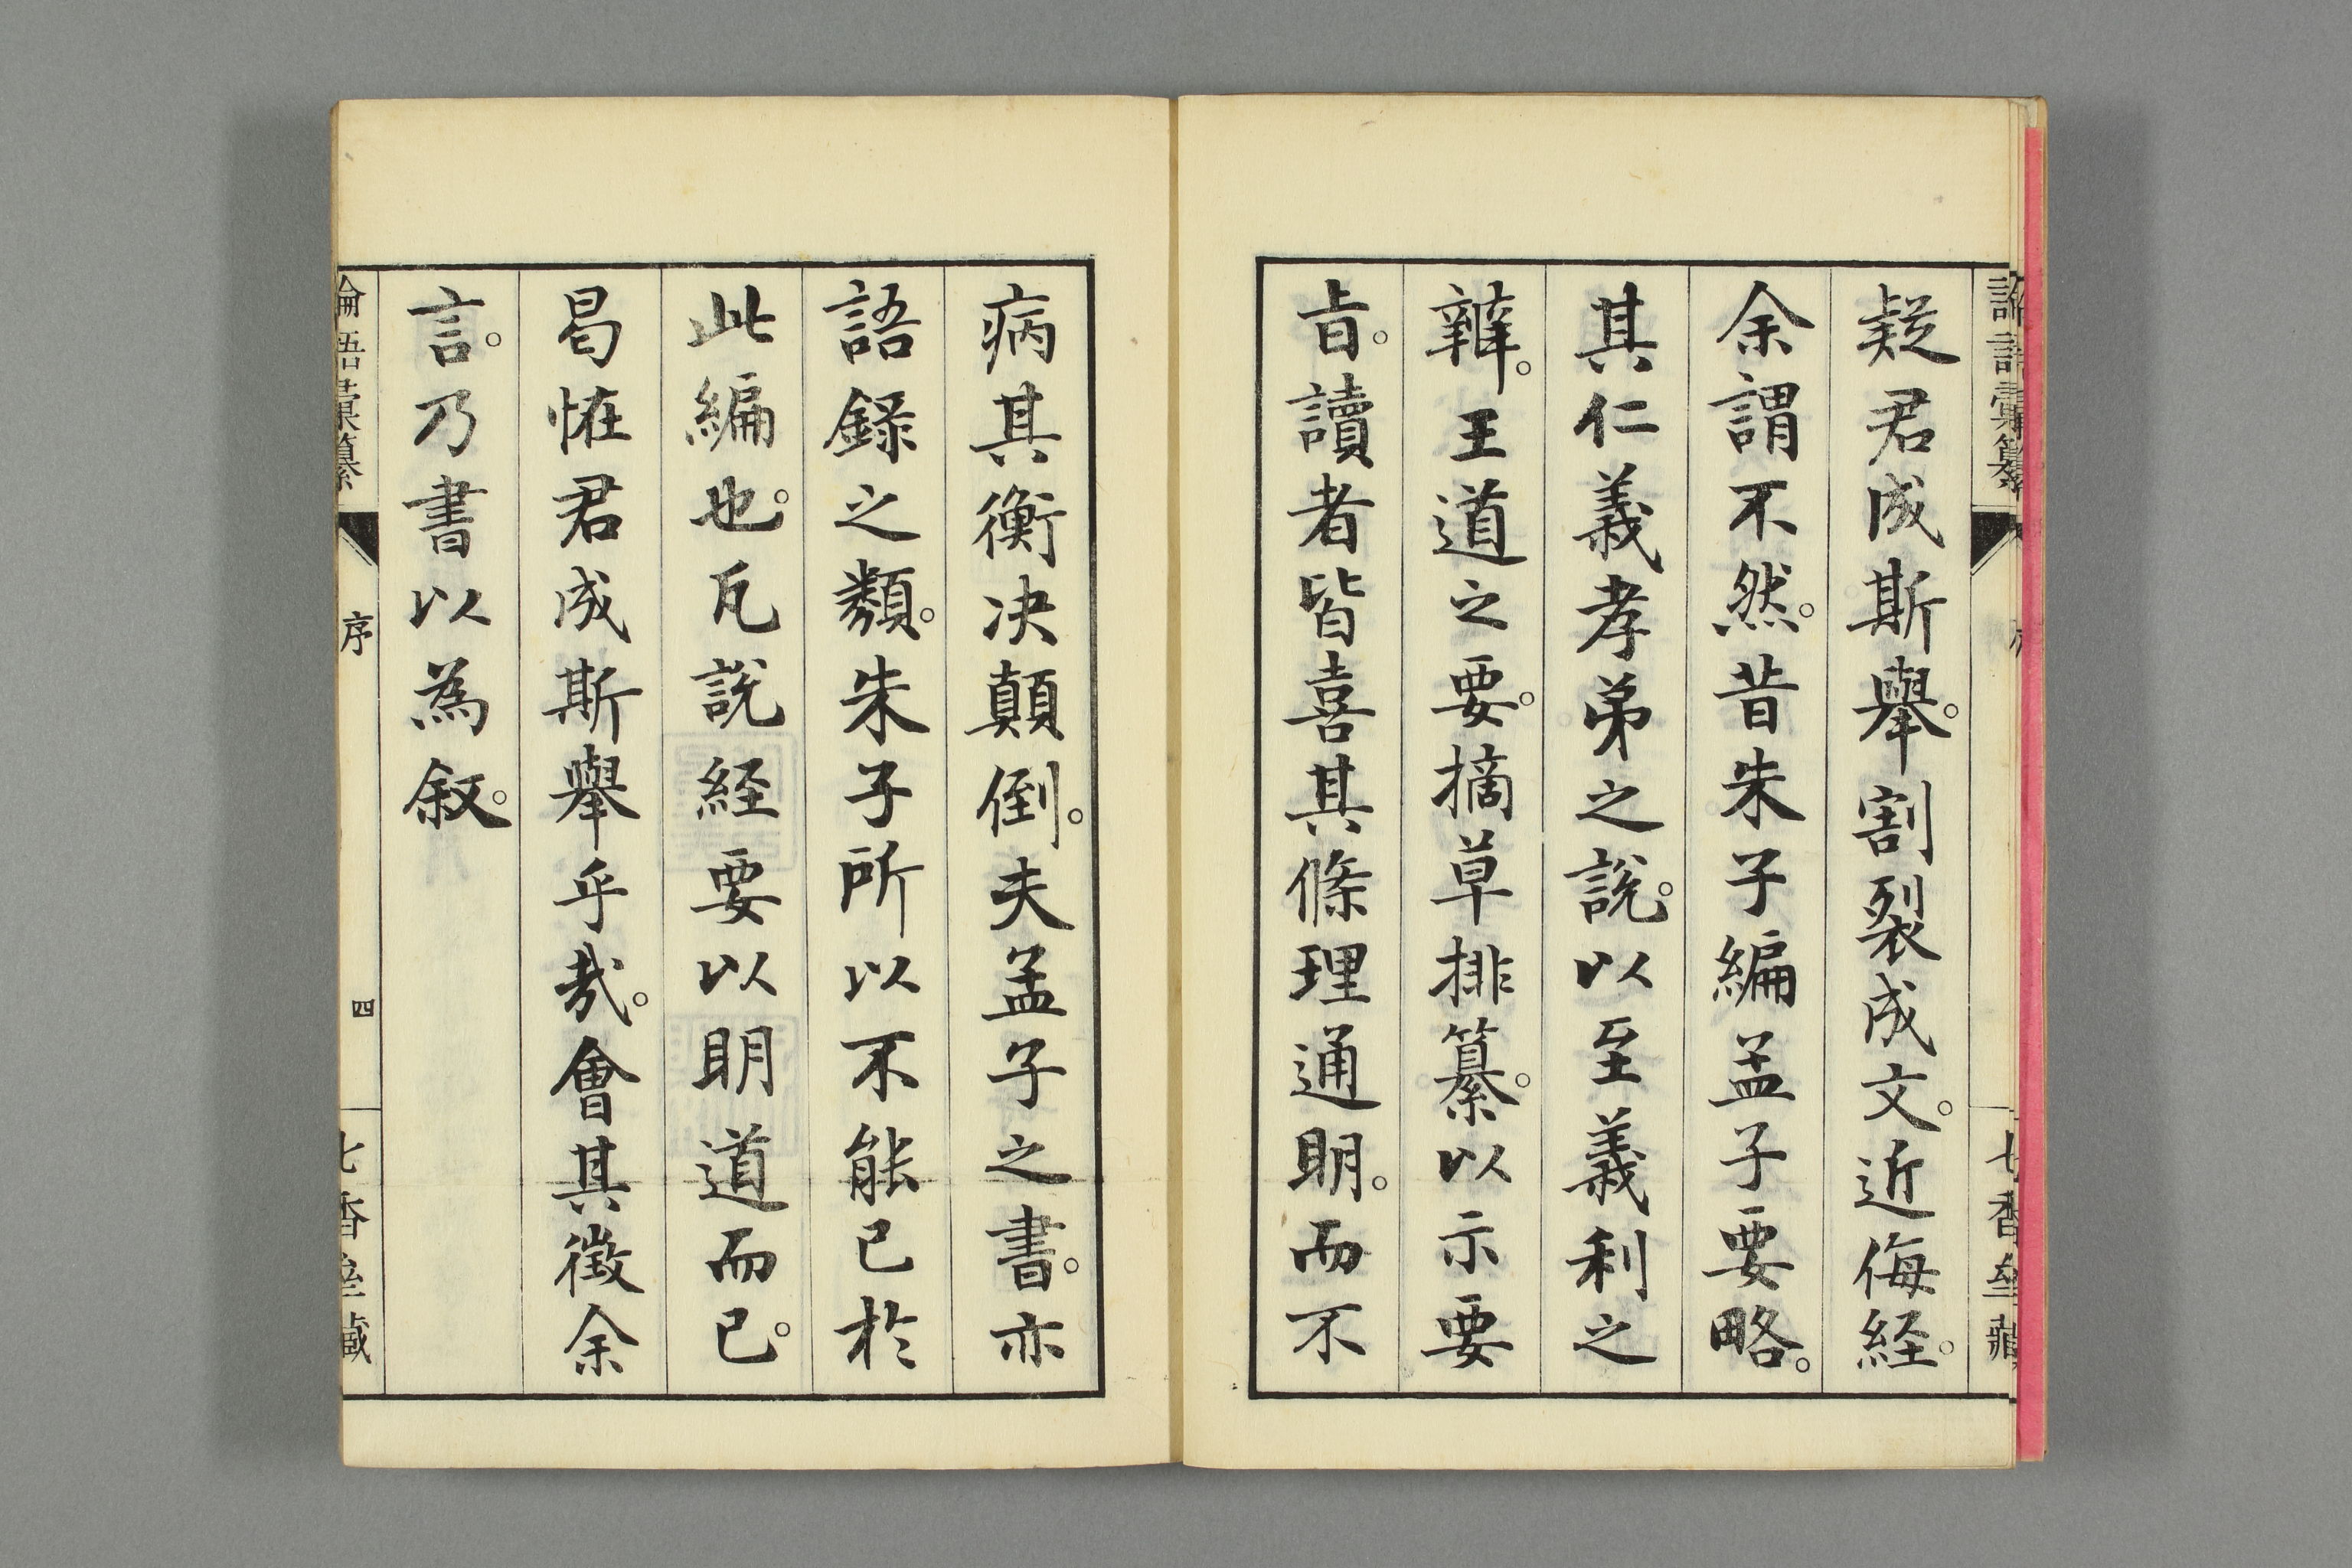 論語彙纂
七香塾藏
疑君成斯擧。割裂成文。近侮経。
余謂不然。昔朱子編孟子要略。
其仁義孝弟之說。以至義利之
辨。王道之要。摘草排纂。以示要
旨。讀者皆喜其條理通明。而不
病其衡决顛倒。夫孟子之書。亦
語錄之類。朱子所以不能已於
此編也。凡說経要以明道而已。
曷恠君成斯舉乎哉。會其徵余
言。乃書以為叙。
論語彙纂
序
四
七香塾藏